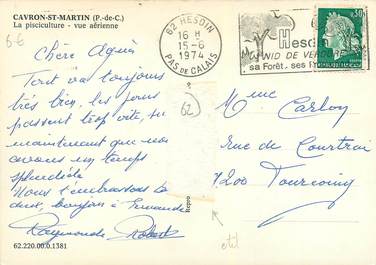 CAVRON-ST-MARTIN (P.-de-C.)
La pisciculture - vue aérienne
6€
62 HESDIN
16 H
15-6
1974
PAS DE CALAIS
Hesd
NID DE VERDURE
sa Forêt, ses R
0,30
Chère Agnès
Tout va toujours
très bien, les jours
passent trop vite, su
maintenant que nous
avons un temps
splendide
Nous t'embrassons la
deux, bonjour à Fernande
Raymonde Robert
62
Repro
Mme Carbon
rue de Courtrai
7200 Tourcoing
62.220.00.0.1381